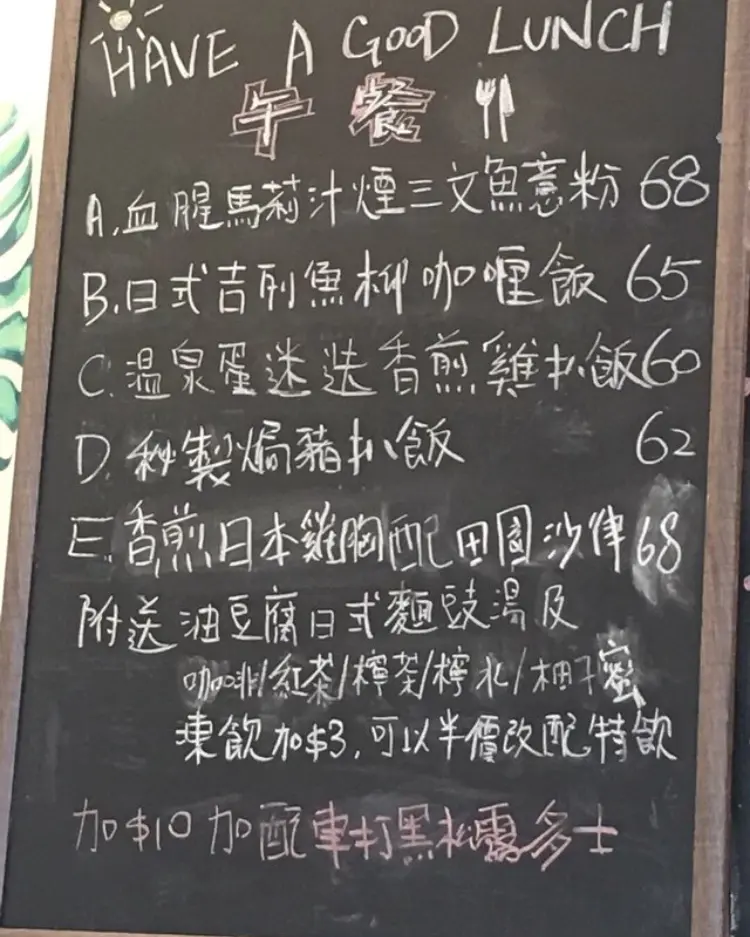 HAVE A GOOD LUNCH
午餐
A.血腥馬莉汁煙三文魚意粉 68
B.日式吉列魚柳咖喱飯 65
C.溫泉蛋迷迭香煎雞扒飯 60
D.秘製焗豬扒飯 62
E.香煎日本雞胸配田園沙律 68
附送油豆腐日式麵豉湯及
咖啡/紅茶/檸茶/檸水/柚子蜜
凍飲加$3,可以半價改配特飲
加$10加配車打黑松露多士